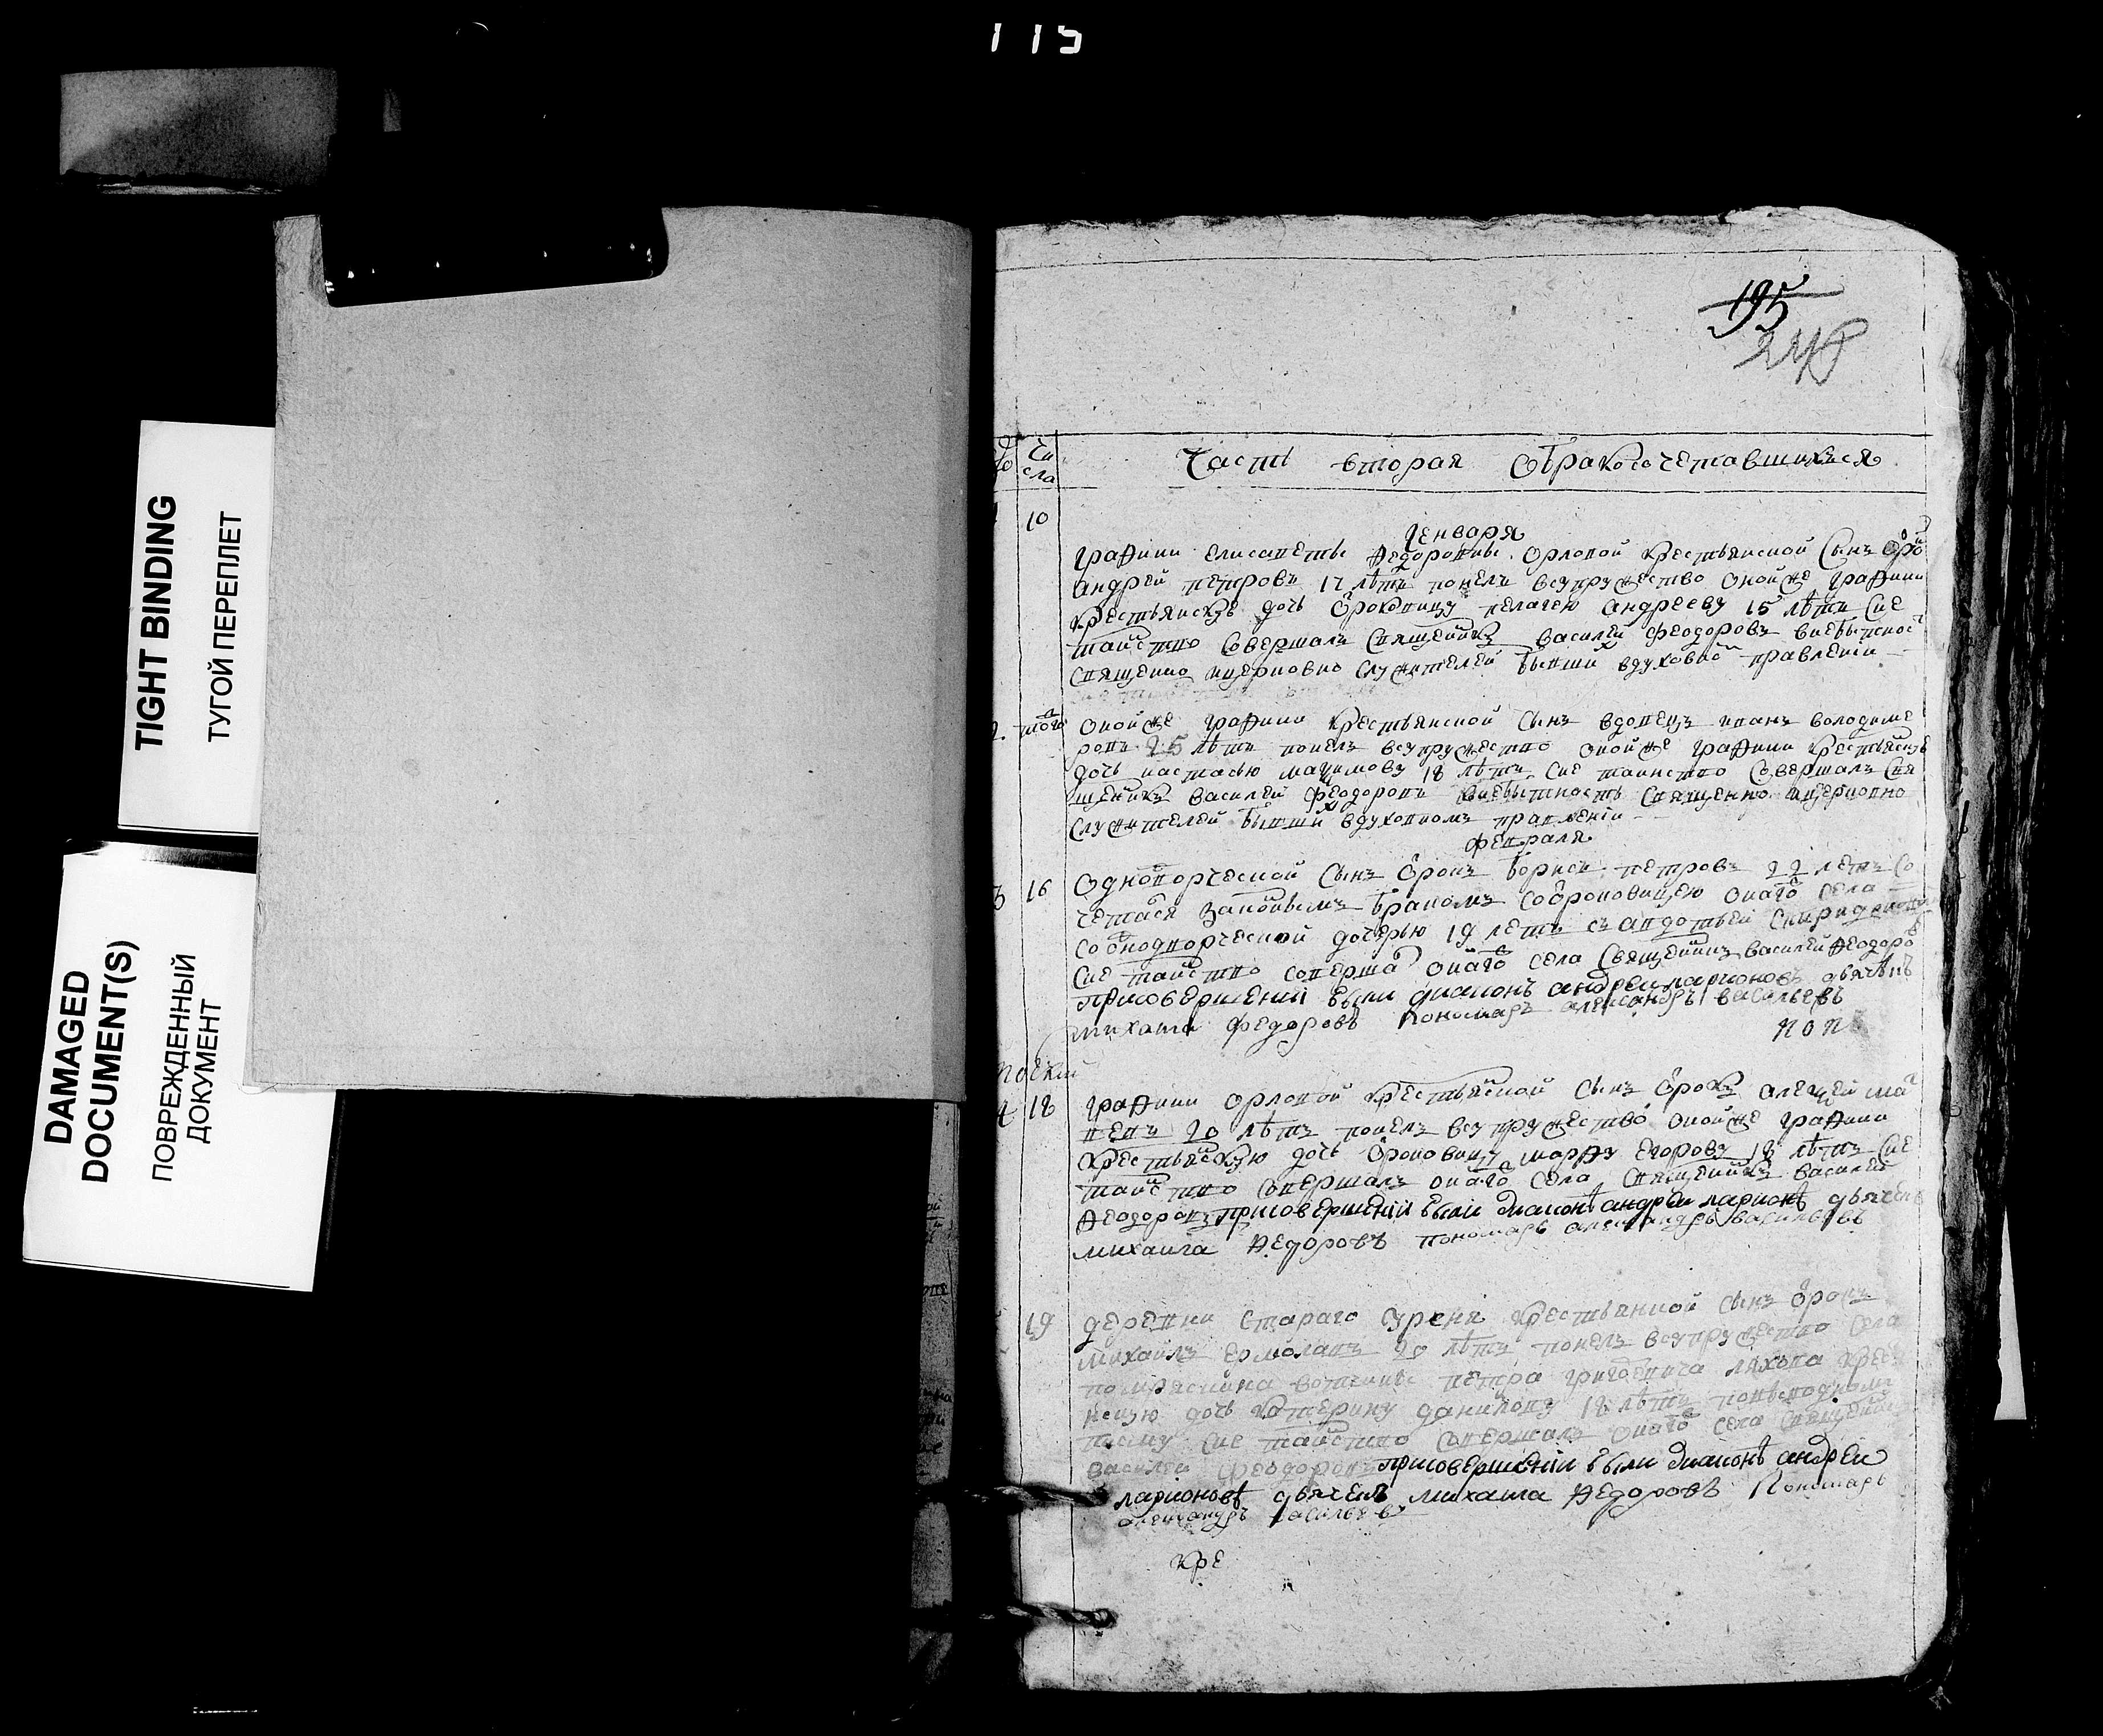 115
TIGHT BINDING
ТУГОЙ ПЕРЕПЛЕТ
DAMAGED
DOCUMENT(S)
ПОВРЕЖДЕННЫЙ
ДОКУМЕНТ
195
248
Чи
сла
Часть вторая Обракосочетавшихся
10
Генваря
графини елисаветы федоровны орловой крестьянской сынъ отро
андрей петровъ 17 лѣтъ понелъ всупружество оной же графини
крестьянскую дочь отроковицу пелагею андрееву 15 лѣтъ Сие
таинство совершалъ Священникъ василей феодоровъ внебытност
священно ицерковно служителей бывши вдуховно правленіи
2. того
оной же графини крестьянской сынъ вдовецъ иванъ володиме
ровъ 25 лѣтъ понелъ всупружество оной же графини крестьянскую
дочь настасью маѯимову 18 лѣтъ Сие таинство совершалъ свя
щенникъ василей феодоровъ внебытность Священно ицерковно
служителей бывши вдуховномъ правленіи
февраля
3 16
однодворческой сынъ отрокъ борисъ петровъ 22 летъ со
четася законнымъ бракомъ соотроковицею онаго села
сооднодворческой дочерью 19 летъ съ авдотьей спиридоновой
сие таинство совершал онаго села Священникъ василей феодоро
присовершеніи были диаконъ андреи ларионовъ дьячекъ
михаила федоровъ пономарь александръ васильевъ
попъ
4 18
графини орловой крестьянской сынъ отрокъ алеѯей мат
вевъ 20 лѣтъ понелъ всупружество оной же графини
крестьянскую дочь отроковицу марфу егорову 18 лѣтъ сие
таинство совершалъ онаго села священникъ василей
феодоровъ присовершеніи были диаконъ андреи ларионъ дьячекъ
михаила федоровъ пономарь александръ васильевъ
19
деревни стараго урени крестьянской сынъ отрокъ
михайлъ ермолаевъ 20 лѣтъ понелъ всупружество села
вотчины петра григоревича ляхова крест
нскую дочь катерину данилову 18 лѣтъ
писму сие таинство совершалъ онаго села священникъ
василей феодоровъ присовершеніи были диаконъ андреи
ларионовъ дьячекъ михаила федоровъ пономарь
александръ васильевъ
кре